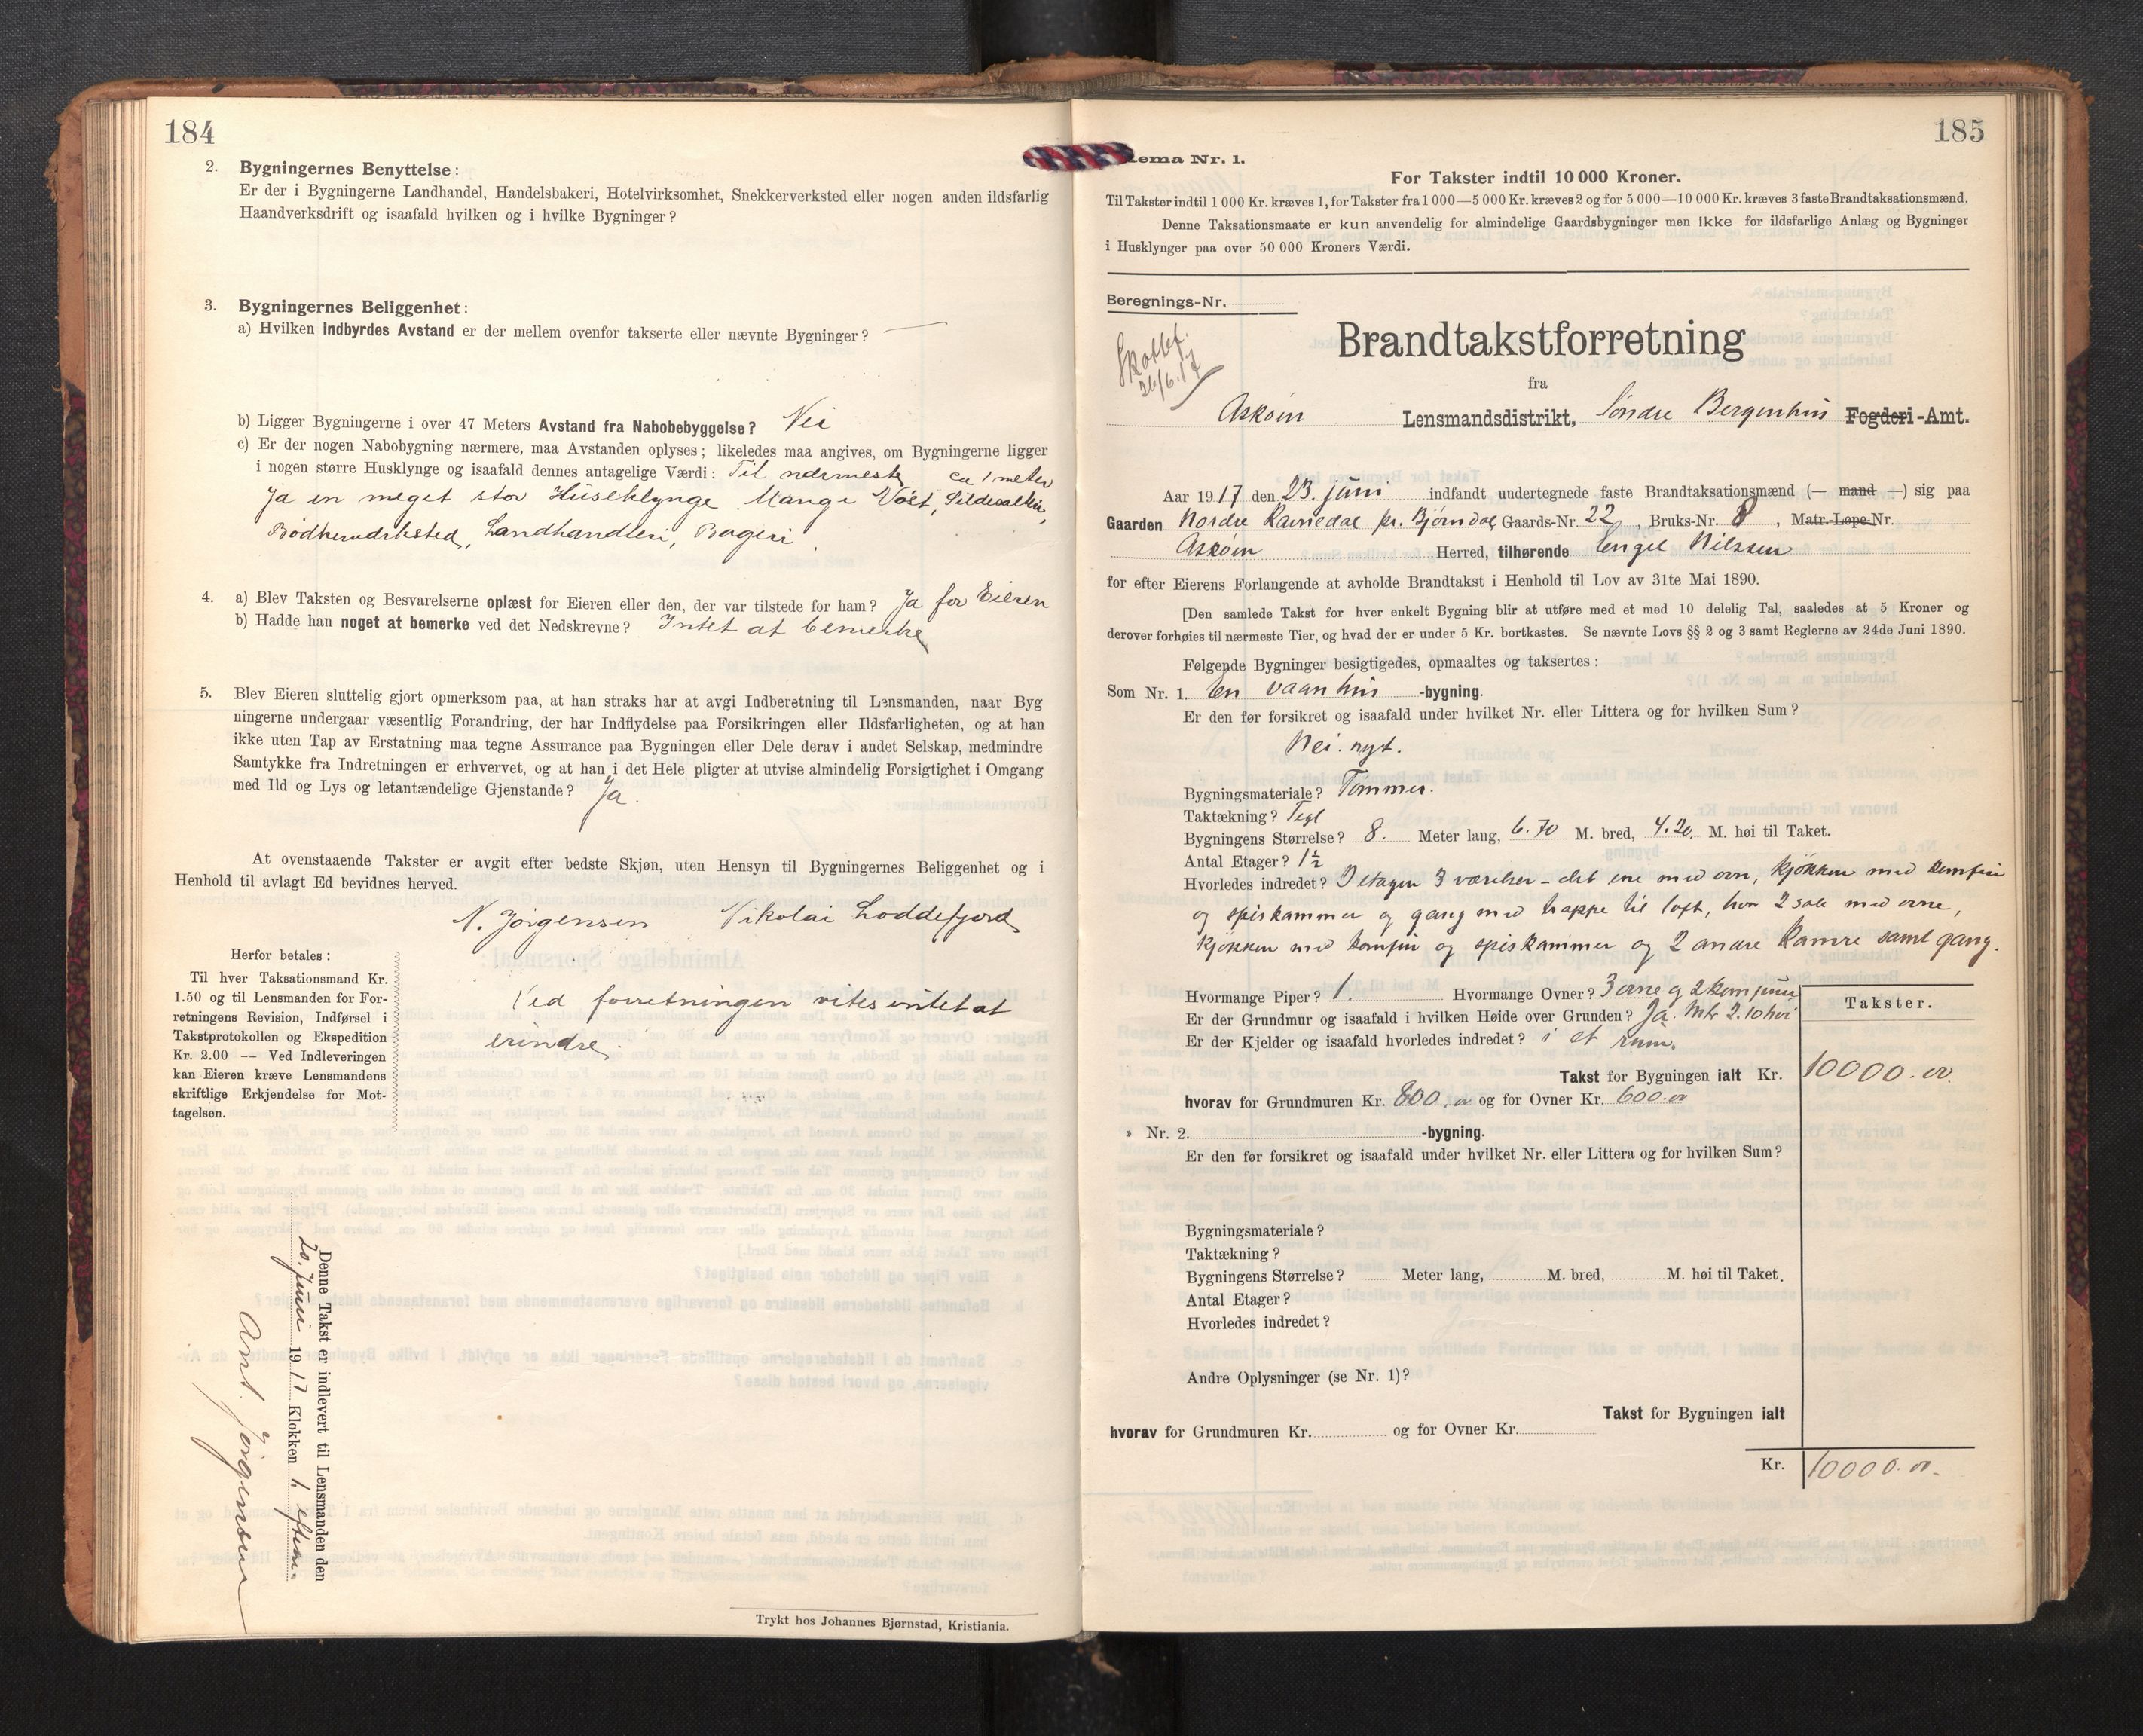 184
2. Bygningernes Benyttelse:
Er der i Bygningerne Landhandel, Handelsbakeri, Hotelvirksomhet, Snekkerverksted eller nogen anden ildsfarlig
Haandverksdrift og isaafald hvilken og i hvilke Bygninger?
3. Bygningernes Beliggenhet:
a) Hvilken indbyrdes Avstand er der mellem ovenfor takserte eller nævnte Bygninger? —
b) Ligger Bygningerne i over 47 Meters Avstand fra Nabobebyggelse? Nei
c) Er der nogen Nabobygning nærmere, maa Avstanden oplyses; likeledes maa angives, om Bygningerne ligger
i nogen større Husklynge og isaafald dennes antagelige Værdi: Til nærmeste ca 1 meter
Ja en meget stor Huseklynge. Mange Vaast, Sildesalteri,
Bödkerverksted, Landhandleri, Bageri
4. a) Blev Taksten og Besvarelserne oplæst for Eieren eller den, der var tilstede for ham? Ja for Eieren
b) Hadde han noget at bemerke ved det Nedskrevne? Intet at bemerke
5. Blev Eieren sluttelig gjort opmerksom paa, at han straks har at avgi Indberetning til Lensmanden, naar Byg
ningerne undergaar væsentlig Forandring, der har Indflydelse paa Forsikringen eller Ildsfarligheten, og at han
ikke uten Tap av Erstatning maa tegne Assurance paa Bygningen eller Dele derav i andet Selskap, medmindre
Samtykke fra Indretningen er erhvervet, og at han i det Hele pligter at utvise almindelig Forsigtighet i Omgang
med Ild og Lys og letantændelige Gjenstande? Ja.
At ovenstaaende Takster er avgit efter bedste Skjøn, uten Hensyn til Bygningernes Beliggenhet og i
Henhold til avlagt Ed bevidnes herved.
N. Jørgensen Nikolai Loddefjord
Herfor betales:
Til hver Taksationsmand Kr.
1.50 og til Lensmanden for For-
retningens Revision, Indførsel i
Takstprotokollen og Ekspedition
Kr. 2.00 — Ved Indleveringen
kan Eieren kræve Lensmandens
skriftlige Erkjendelse for Mot-
tagelsen.
Ved forretningen vites intet at
erindre.
Denne Takst er indlevert til Lensmanden den
20. juni 1917 Klokken 1 efterm.
Ant. Jørgensen
Trykt hos Johannes Bjørnstad, Kristiania.
185
ema Nr. 1.
For Takster indtil 10 000 Kroner.
Til Takster indtil 1 000 Kr. kræves 1, for Takster fra 1 000—5 000 Kr. kræves 2 og for 5 000—10 000 Kr. kræves 3 faste Brandtaksationsmænd.
Denne Taksationsmaate er kun anvendelig for almindelige Gaardsbygninger men ikke for ildsfarlige Anlæg og Bygninger
i Husklynger paa over 50 000 Kroners Værdi.
Beregnings-Nr.
26/6.17
Brandtakstforretning
fra
Askøen Lensmandsdistrikt, Søndre Bergenhus Fogderi-Amt.
Aar 1917 den 23. juni indfandt undertegnede faste Brandtaksationsmænd (— mand —) sig paa
Gaarden Nordre Ravnedal pr. Bjørndal Gaards-Nr. 22, Bruks-Nr. 8, Matr.-Løpe-Nr.
Askøen Herred, tilhørende Engel Nilssen
for efter Eierens Forlangende at avholde Brandtakst i Henhold til Lov av 31te Mai 1890.
[Den samlede Takst for hver enkelt Bygning blir at utføre med et med 10 delelig Tal, saaledes at 5 Kroner og
derover forhøies til nærmeste Tier, og hvad der er under 5 Kr. bortkastes. Se nævnte Lovs §§ 2 og 3 samt Reglerne av 24de Juni 1890.
Følgende Bygninger besigtigedes, opmaaltes og taksertes:
Som Nr. 1. En vaanhus -bygning.
Er den før forsikret og isaafald under hvilket Nr. eller Littera og for hvilken Sum?
Nei. nyt.
Bygningsmateriale? Tømmer.
Taktækning? Tegl
Bygningens Størrelse? 8. Meter lang, 6.70 M. bred, 4.20. M. høi til Taket.
Antal Etager? 1½
Hvorledes indredet? I etagen 3 værelser - det ene med ovn, kjøkken med komfur
og spiskammer og gang med trappe til loft, hvor 2 sale med ovne,
kjøkken med komfur og spiskammer og 2 andre kamre samt gang.
Hvormange Piper? 1. Hvormange Ovner? 3 ovne og 2 komfurer
Er der Grundmur og isaafald i hvilken Høide over Grunden? Ja. Mtr 2.10 høi
Er der Kjelder og isaafald hvorledes indredet? i et rum.
Takster.
Takst for Bygningen ialt Kr. 10000.00.
hvorav for Grundmuren Kr. 800.00 og for Ovner Kr. 600.00
» Nr. 2. -bygning.
Er den før forsikret og isaafald under hvilket Nr. eller Littera og for hvilken Sum?
Bygningsmateriale?
Taktækning?
Bygningens Størrelse? Meter lang, M. bred, M. høi til Taket.
Antal Etager?
Hvorledes indredet?
Andre Oplysninger (se Nr. 1)?
Takst for Bygningen ialt
hvorav for Grundmuren Kr. og for Ovner Kr.
Kr. 10000.00.